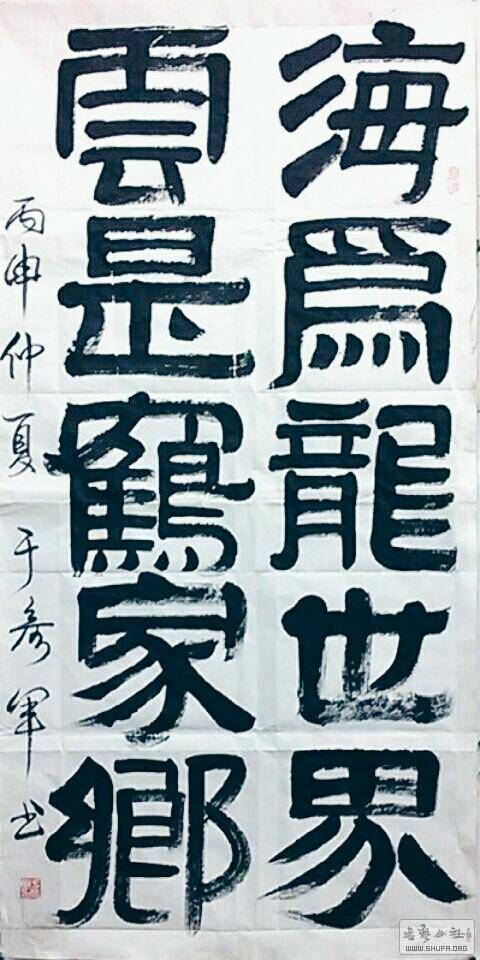 海爲龍世界
雲是鶴家鄉
丙申仲夏于彦军书
书艺公社
WWW.SHUFA.ORG